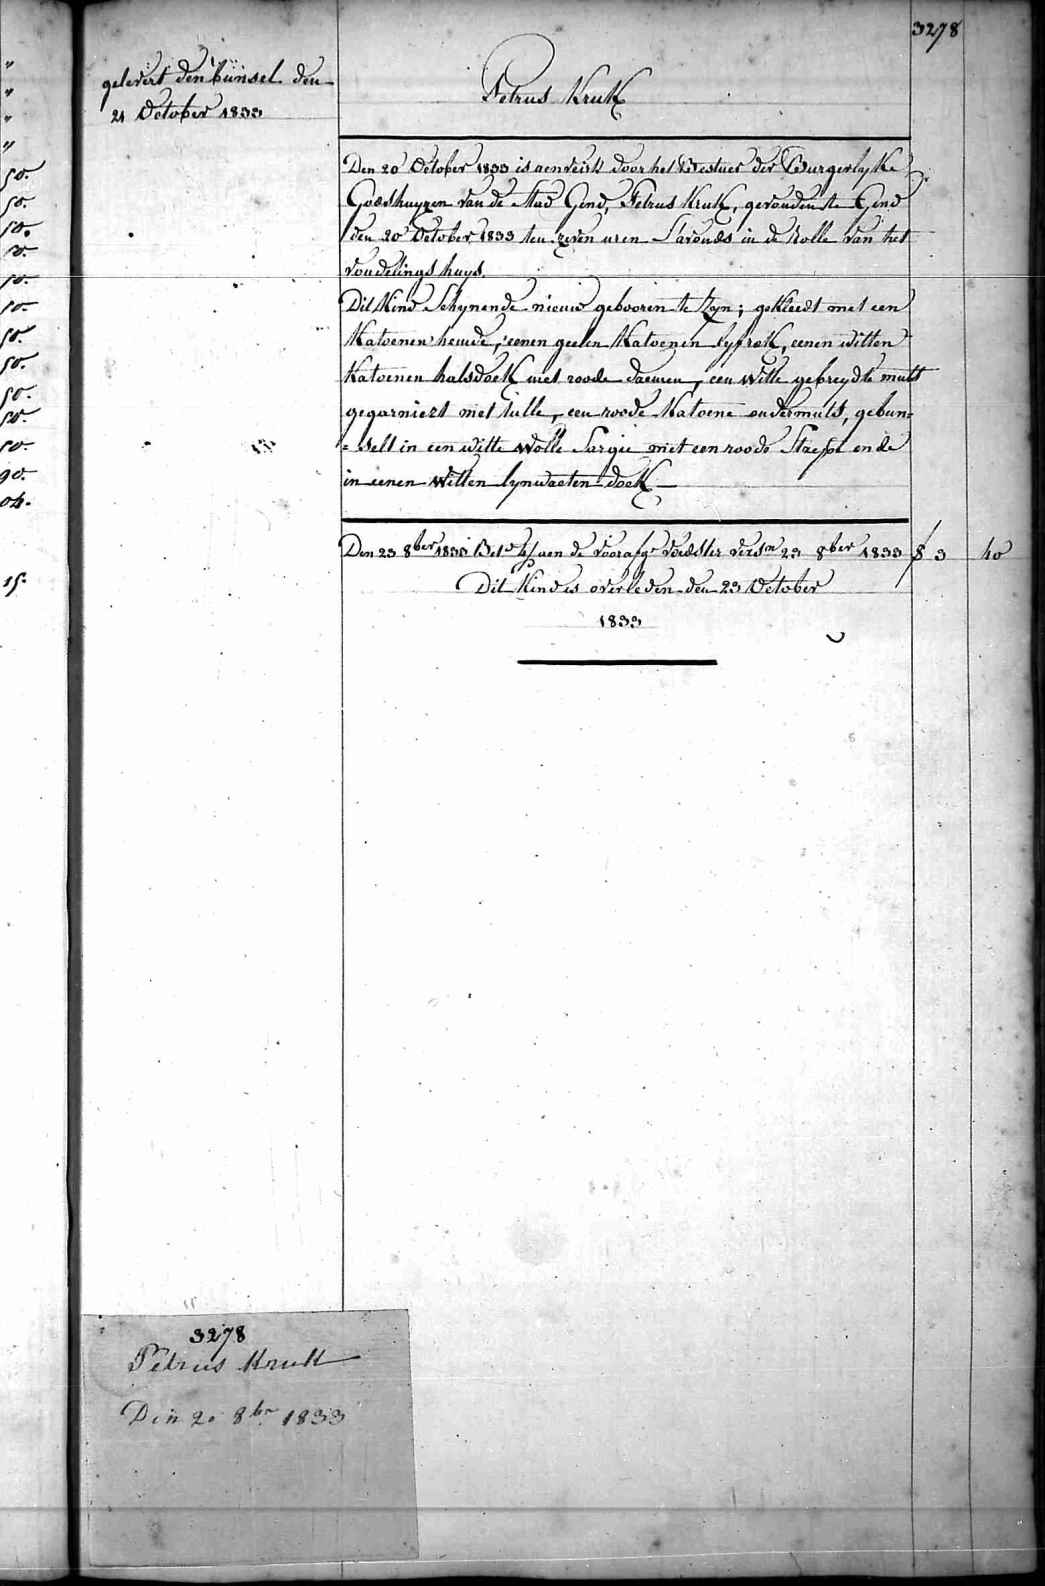 3278
gelevert den bunsel den
21 October 1833
Petrus Kruk
Den 20 October 1833 is aenveirt door het Bestuer der Burgerlyke
Godshuyzen van de Stad Gend, Petrus Kruk, gevonden te Gend
den 20 October 1833 ten zeven uren S'avonds in de Rolle van het
vondelings huys
Dit Kind Schynende nieuw gebooren te Zyn; gekleedt met een
Katoenen hemde, eenen geelen Katoenen lyfrok, eenen witten
Katoenen halsdoek met roode daemen, een witte gebreyde muts
gegarniert met tulle, een roode Katoene ondermuts, gebun=
=selt in een witte wolle Sargie met een roode Staepe ende
in eenen witten lynwaeten doek —
Den 23 8ber 1833 Bet. aen de voorafge voedster versn 23 8ber 1833 3 40
Dit Kind is overleden den 23 October
1833
"
"
"
"
50.
50.
50.
50.
50.
50.
50.
50.
50.
50.
50.
90.
04.
15.
3278
Petrus Kruk
Den 20 8br 1833